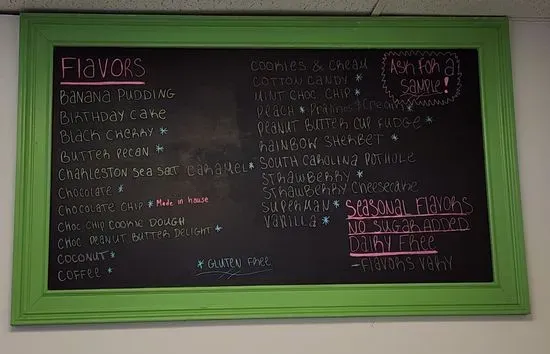 FLAVORS
BANANA PUDDING
BIRTHDAY CAKE
BLACK CHERRY *
BUTTER PECAN *
CHARLESTON SEA SALT CARAMEL *
CHOCOLATE *
CHOCOLATE CHIP * Made in house
CHOC CHIP COOKIE DOUGH
CHOC. PEANUT BUTTER DELIGHT *
COCONUT *
COFFEE *
COOKIES & CREAM
COTTON CANDY *
MINT CHOC CHIP *
PEACH * Pralines & Cream
PEANUT BUTTER CUP FUDGE *
RAINBOW SHERBET *
SOUTH CAROLINA POTHOLE
STRAWBERRY *
STRAWBERRY CHEESECAKE
SUPERMAN *
VANILLA *
* GLUTEN FREE
ASK FOR A
SAMPLE!
SEASONAL FLAVORS
NO SUGAR ADDED
DAIRY FREE
-FLAVORS VARY